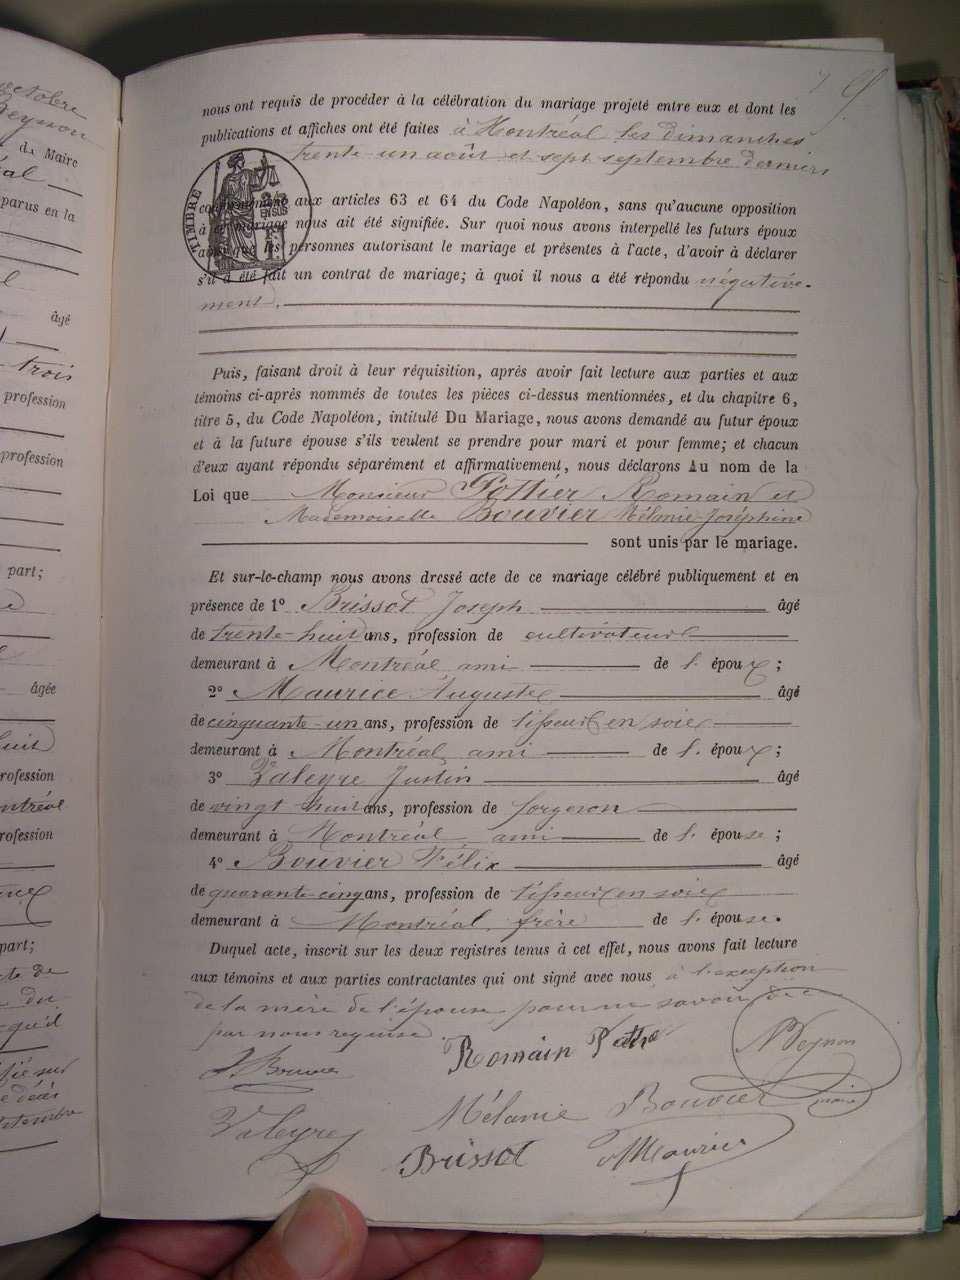 octobre
Peynon
de Maire
al
parus en la
âgé
trois
profession
profession
part;
âgée
huit
profession
Montréal
profession
part;
acte de
du
septembre
79
nous ont requis de procéder à la célébration du mariage projeté entre eux et dont les
publications et affiches ont été faites à Montréal les dimanches
trente-un août et sept septembre derniers
TIMBRE
conformément aux articles 63 et 64 du Code Napoléon, sans qu'aucune opposition
à ce mariage nous ait été signifiée. Sur quoi nous avons interpellé les futurs époux
ainsi que les personnes autorisant le mariage et présentes à l'acte, d'avoir à déclarer
s'il a été fait un contrat de mariage; à quoi il nous a été répondu négative-
ment.
Puis, faisant droit à leur réquisition, après avoir fait lecture aux parties et aux
témoins ci-après nommés de toutes les pièces ci-dessus mentionnées, et du chapitre 6,
titre 5, du Code Napoléon, intitulé Du Mariage, nous avons demandé au futur époux
et à la future épouse s'ils veulent se prendre pour mari et pour femme; et chacun
d'eux ayant répondu séparément et affirmativement, nous déclarons Au nom de la
Loi que Monsieur Pottier Romain et
Mademoiselle Bouvier Mélanie-Joséphine
sont unis par le mariage.
Et sur-le-champ nous avons dressé acte de ce mariage célébré publiquement et en
présence de 1° Brissot Joseph âgé
de trente-huit ans, profession de cultivateur
demeurant à Montréal ami de l' époux;
2° Maurice Auguste âgé
de cinquante-un ans, profession de tisseur en soie
demeurant à Montréal, ami de l' époux;
3° Valeyre Justin âgé
de vingt huit ans, profession de forgeron
demeurant à Montréal, ami de l' épouse;
4° Bouvier Félix âgé
de quarante-cinq ans, profession de tisseur en soie
demeurant à Montréal, frère de l' épouse.
Duquel acte, inscrit sur les deux registres tenus à cet effet, nous avons fait lecture
aux témoins et aux parties contractantes qui ont signé avec nous à l'exception
de la mère de l'épouse pour ne savoir de ce
par nous requise.
F. Bouvier Romain Potier Peynon
Mélanie Bouvier maire
Valeyre Brissot Maurice